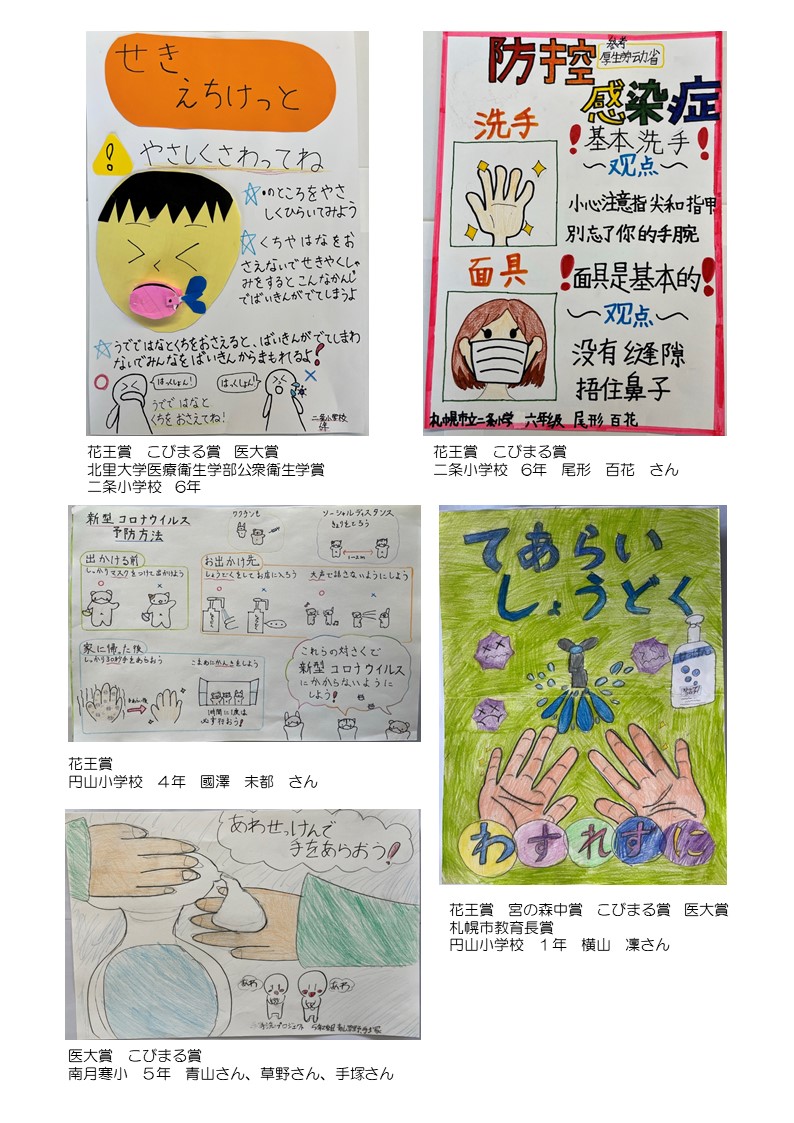 せき
えちけっと
!
やさしくさわってね
☆•のところをやさ
しくひらいてみよう
☆くちやはなをお
さえないでせきやくしゃ
みをするとこんなかんじ
でばいきんがでてしまうよ
☆うでではなとくちをおさえると、ばいきんがでてしまわ
ないでみんなをばいきんからまもれるよ!
はっくしょん!
はっくしょん!
うでで はなと
くちを おさえてね!
二条小学校
6年
花王賞 こびまる賞 医大賞
北里大学医療衛生学部公衆衛生学賞
二条小学校 6年
参考
厚生労动省
防控
感染症
洗手
!基本洗手!
~观点~
小心注意指尖和指甲
別忘了你的手腕
面具
!面具是基本的!
~观点~
没有缝隙
捂住鼻子
札幌市立二条小学 六年級 尾形 百花
花王賞 こびまる賞
二条小学校 6年 尾形 百花 さん
新型コロナウイルス
予防方法
ワクチンも
ソーシャルディスタンス
きょりをとろう
1~2m
出かける前
しっかりマスクをつけて出かけよう
お出かけ先
しょうどくをしてお店に入ろう
大声で話さないようにしよう
家に帰った後
しっかり30秒手をあらおう
こまめにかんきをしよう
1時間に1度は
必ず行おう!
これらの対さくで
新型コロナウイルス
にかからないように
しよう!
花王賞
円山小学校 4年 國澤 未都 さん
てあらい
しょうどく
わすれずに
花王賞 宮の森中賞 こびまる賞 医大賞
札幌市教育長賞
円山小学校 1年 横山 凜さん
あわせっけんで
手をあらおう!
あわ
あわ
手洗いプロジェクト
医大賞 こびまる賞
南月寒小 5年 青山さん、草野さん、手塚さん